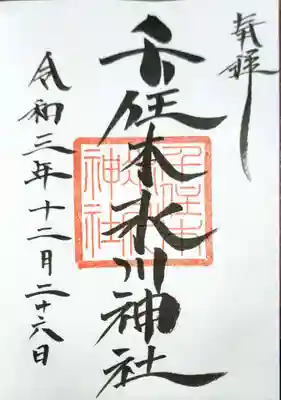 奉拝
千住本氷川神社
千住本
氷川
神社
令和三年十二月二十六日